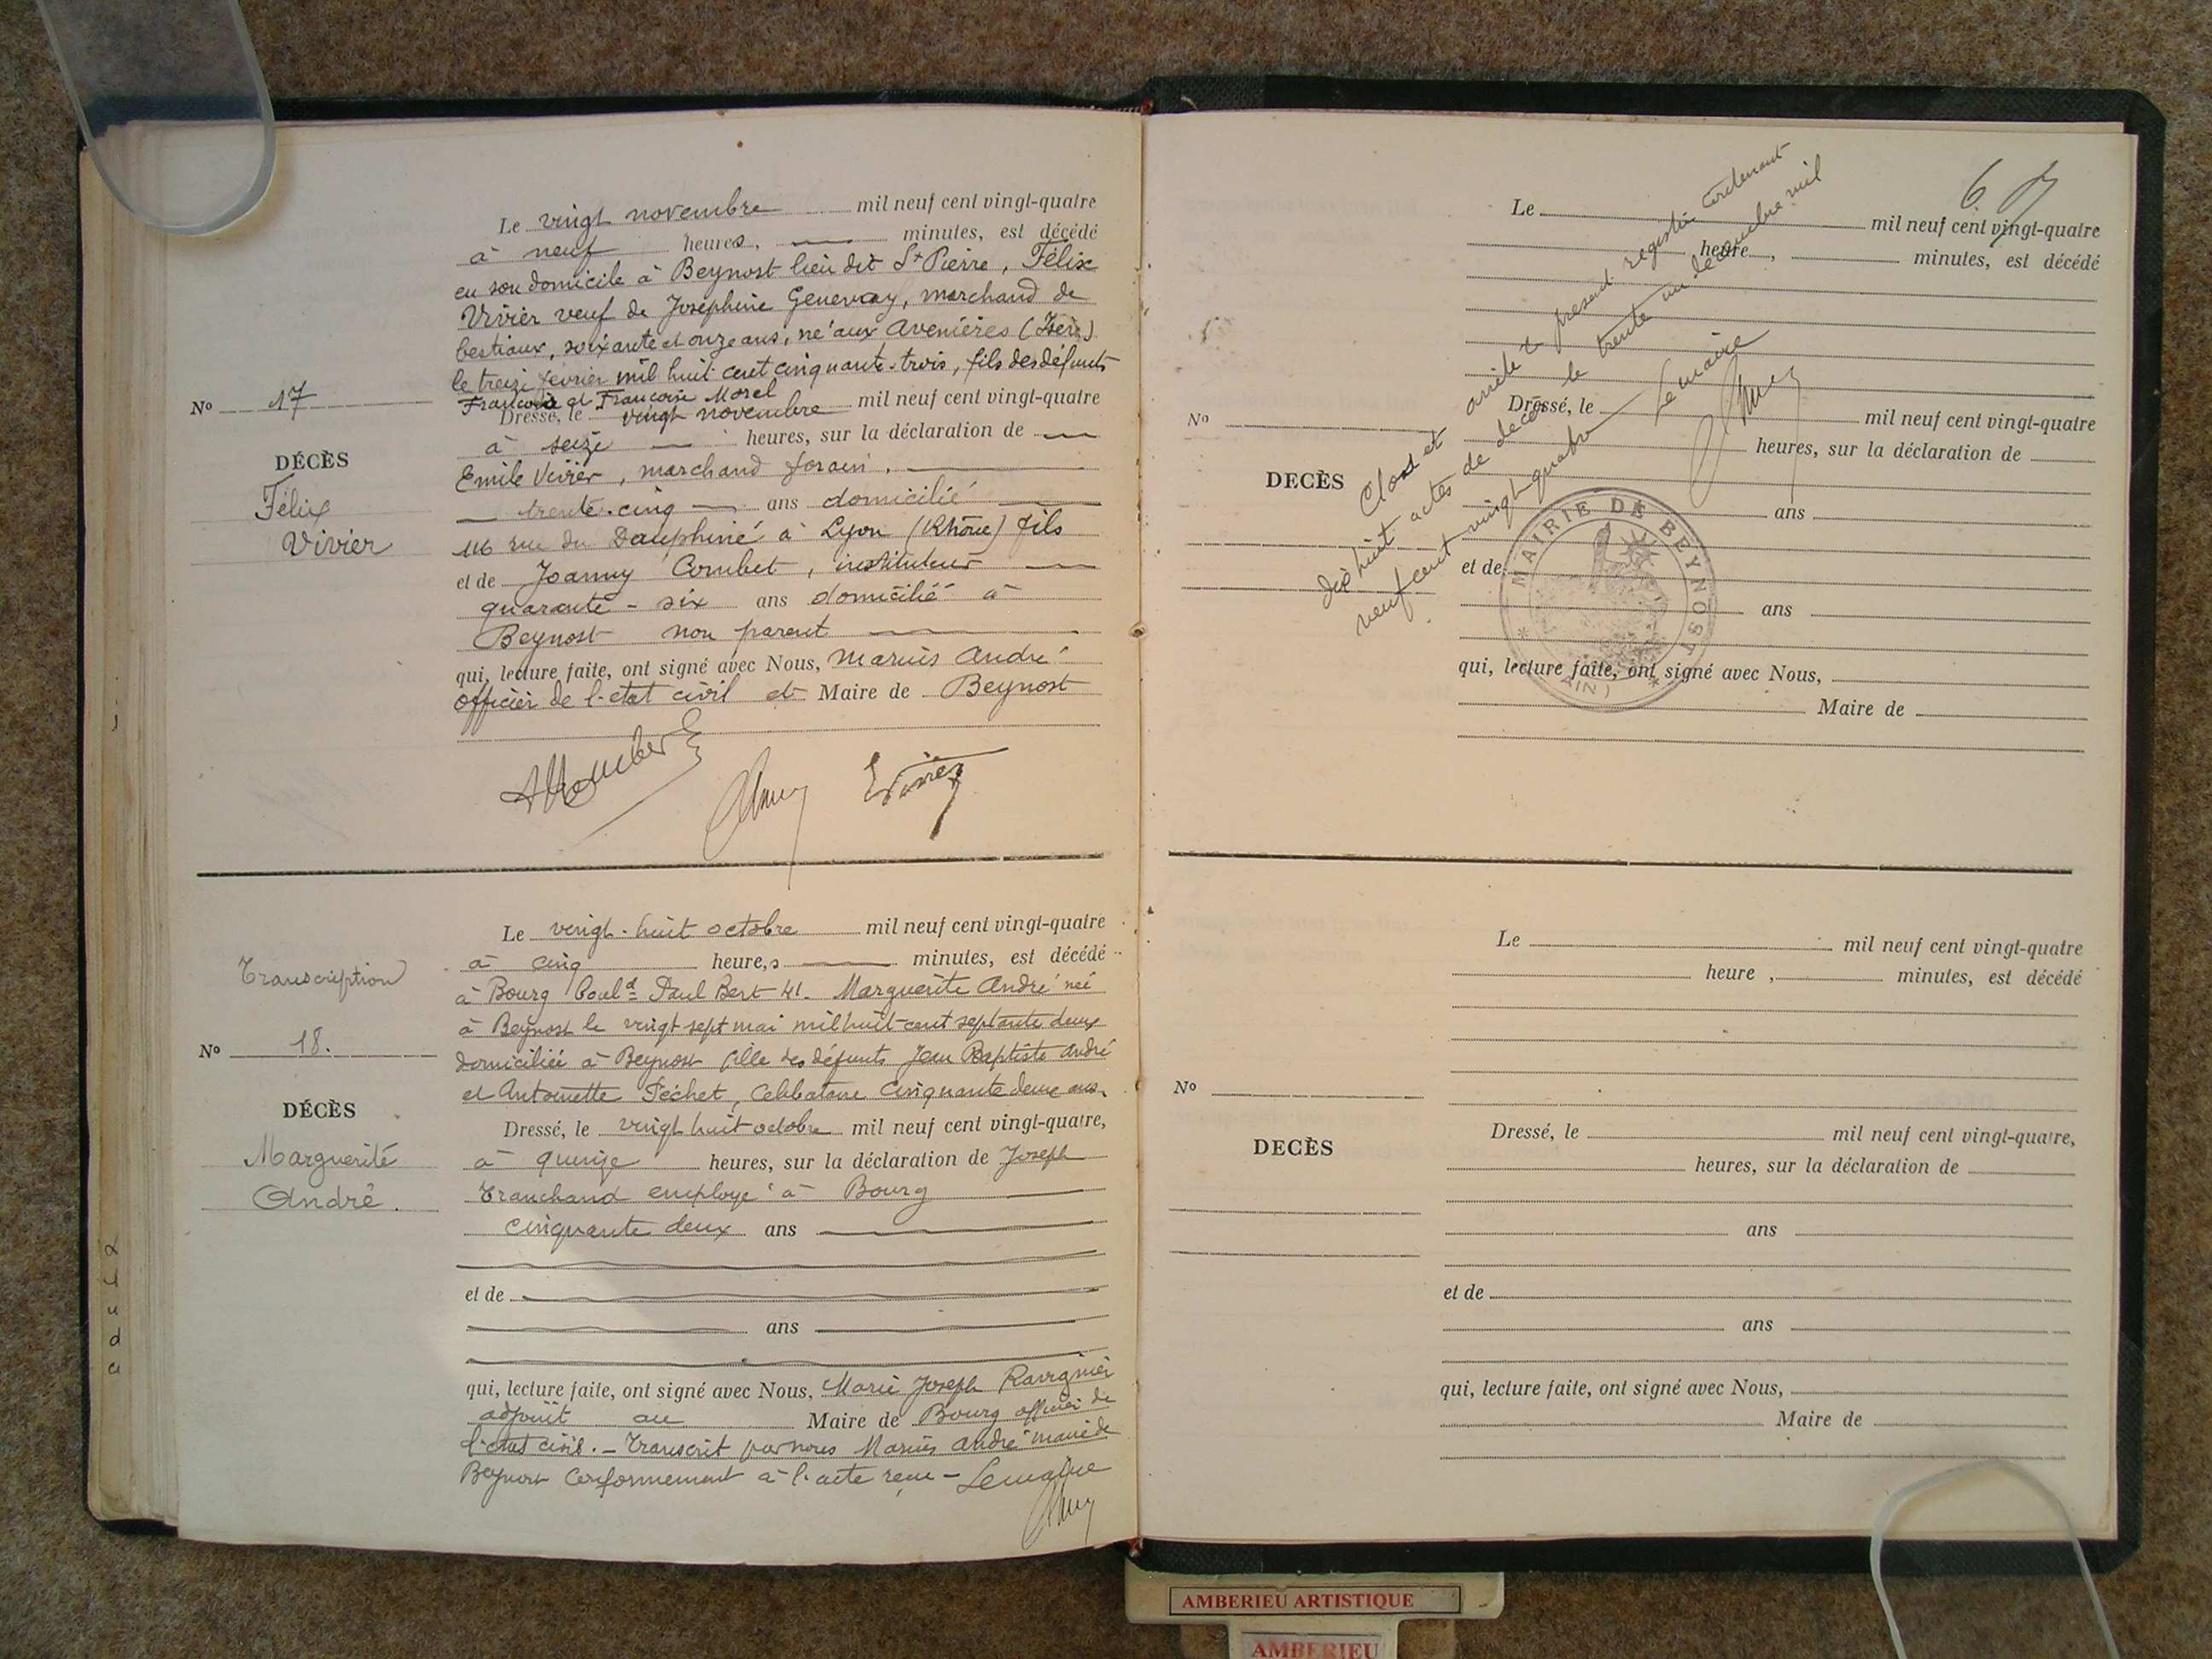 Le vingt novembre mil neuf cent vingt-quatre
à neuf heures, minutes, est décédé
en son domicile à Beynost lieu dit St Pierre, Félix
Vivier veuf de Joséphine Genevay, marchand de
bestiaux, soixante et onze ans, né aux Avenières (Isère)
le treize février mil huit cent cinquante-trois, fils des défunts
François et Françoise Morel
Dressé, le vingt novembre mil neuf cent vingt-quatre
à seize heures, sur la déclaration de
Emile Vivier, marchand forain,
trente-cinq ans domicilié
116 rue du Dauphiné à Lyon (Rhône) fils
et de Joanny Combet, instituteur
quarante-six ans domicilié à
Beynost non parent
qui, lecture faite, ont signé avec Nous, Marius André
officier de l'etat civil et Maire de Beynost
No 17
DÉCÈS
Félix
Vivier
EVivier
Le vingt-huit octobre mil neuf cent vingt-quatre
à cinq heure,s minutes, est décédé
à Bourg bould Paul Bert 41. Marguerite André née
à Beynost le vingt sept mai mil huit-cent septante deux
domiciliée à Beynost fille des défunts Jean Baptiste André
et Antoinette Péchet, Célibataire Cinquante deux ans.
Dressé, le vingt huit octobre mil neuf cent vingt-quatre,
à quinze heures, sur la déclaration de Joseph
Tranchand employé à Bourg
cinquante deux ans
et de
ans
qui, lecture faite, ont signé avec Nous, Marie Joseph
adjoint au Maire de Bourg officier de
l'etat civil. - Transcrit par nous Marius André maire de
Beynost Conformement à l'acte reçu - Le maire
Transcription
No 18.
DÉCÈS
Marguerite
André.
6
Le mil neuf cent vingt-quatre
heure, minutes, est décédé
No
DECÈS
Dressé, le mil neuf cent vingt-quatre
heures, sur la déclaration de
ans
et de
ans
qui, lecture faite, ont signé avec Nous,
Maire de
Clos et arrêté le présent registre contenant
dix huit actes de décès le trente un decembre mil
neuf cent vingt-quatre Le maire
MAIRIE DE BEYNOST
(AIN)
Le mil neuf cent vingt-quatre
heure, minutes, est décédé
No
DECÈS
Dressé, le mil neuf cent vingt-quatre,
heures, sur la déclaration de
ans
et de
ans
qui, lecture faite, ont signé avec Nous,
Maire de
AMBERIEU ARTISTIQUE
AMBERIEU